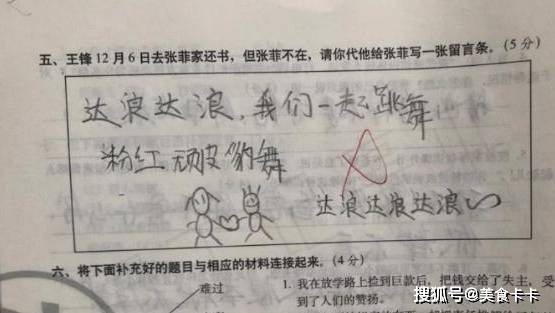 五、王锋12月6日去张菲家还书，但张菲不在，请你代他给张菲写一张留言条。(5分)
达浪达浪，我们一起跳舞
粉红顽皮豹舞
达浪达浪达浪
六、将下面补充好的题目与相应的材料连接起来。(4分)
难过
1. 我在放学路上捡到巨款后，把钱交给了失主，受
到了人们的赞扬。
搜狐号@美食卡卡